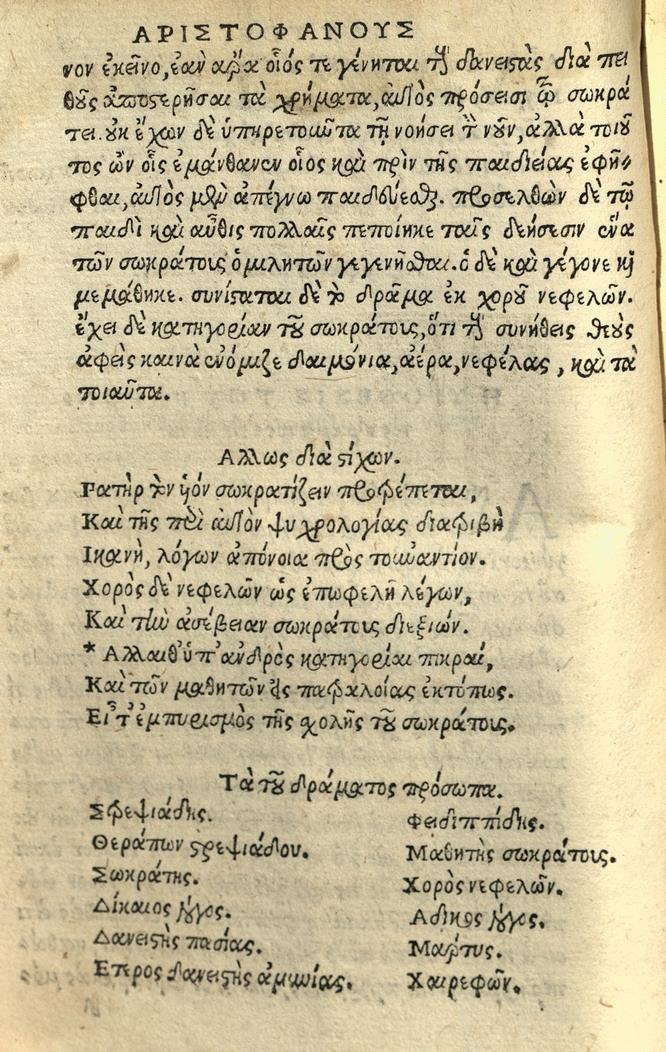 ΑΡΙΣΤΟΦΑΝΟΥΣ
νον ἐκεῖνο, ἐὰν ἄρα οἷός τε γένηται τοὺς δανειστὰς διὰ πει
θοῦς ἀποστερῆσαι τὰ χρήματα, αὐτὸς πρόσεισι τῷ σωκρά
τει. οὐκ ἔχων δὲ ὑπηρετοῦντα τῇ νοήσει τὸν νοῦν, ἀλλὰ τοιοῦ
τος ὢν οἷς ἐμάνθανεν οἷος καὶ πρὶν τῆς παιδείας ἐφῆ
φθαι, αὐτὸς μὲν ἀπέγνω παιδεύεσθαι. προσελθὼν δὲ τῷ
παιδὶ καὶ αὖθις πολλαῖς πεποίηκε ταῖς δεήσεσιν ἕνα
τῶν σωκράτους ὁμιλητῶν γεγενῆσθαι. ὁ δὲ καὶ γέγονε καὶ
μεμάθηκε. συνίσταται δὲ τὸ δρᾶμα ἐκ χοροῦ νεφελῶν.
ἔχει δὲ κατηγορίαν τοῦ σωκράτους, ὅτι τοὺς συνήθεις θεοὺς
ἀφεὶς καινὰ ἐνόμιζε δαιμόνια, ἀέρα, νεφέλας, καὶ τὰ
τοιαῦτα.
Αλλως διὰ στίχων.
Πατὴρ τὸν υἱὸν σωκρατίζειν προτρέπεται,
Καὶ τῆς περὶ αὐτὸν ψυχρολογίας διατριβὴ
Ικανὴ, λόγων ἀπόνοια πρὸς τοὐναντίον.
Χορὸς δὲ νεφελῶν ὡς ἐπωφελῆ λέγων,
Καὶ τὴν ἀσέβειαν σωκράτους διεξιών.
* Αλλαιθ' ὑπ' ἀνδρὸς κατηγορίαι πικραί,
Καὶ τῶν μαθητῶν εἷς πατραλοίας ἐκτόπως.
Εἶτ' ἐμπυρισμὸς τῆς σχολῆς τοῦ σωκράτους.
Τὰ τοῦ δράματος πρόσωπα.
Στρεψιάδης.
Φειδιππίδης.
Θεράπων στρεψιάδου.
Μαθητὴς σωκράτους.
Σωκράτης.
Χορὸς νεφελῶν.
Δίκαιος λόγος.
Αδικος λόγος.
Δανειστὴς πασίας.
Μάρτυς.
Ετερος δανειστὴς ἀμυνίας.
Χαιρεφῶν.